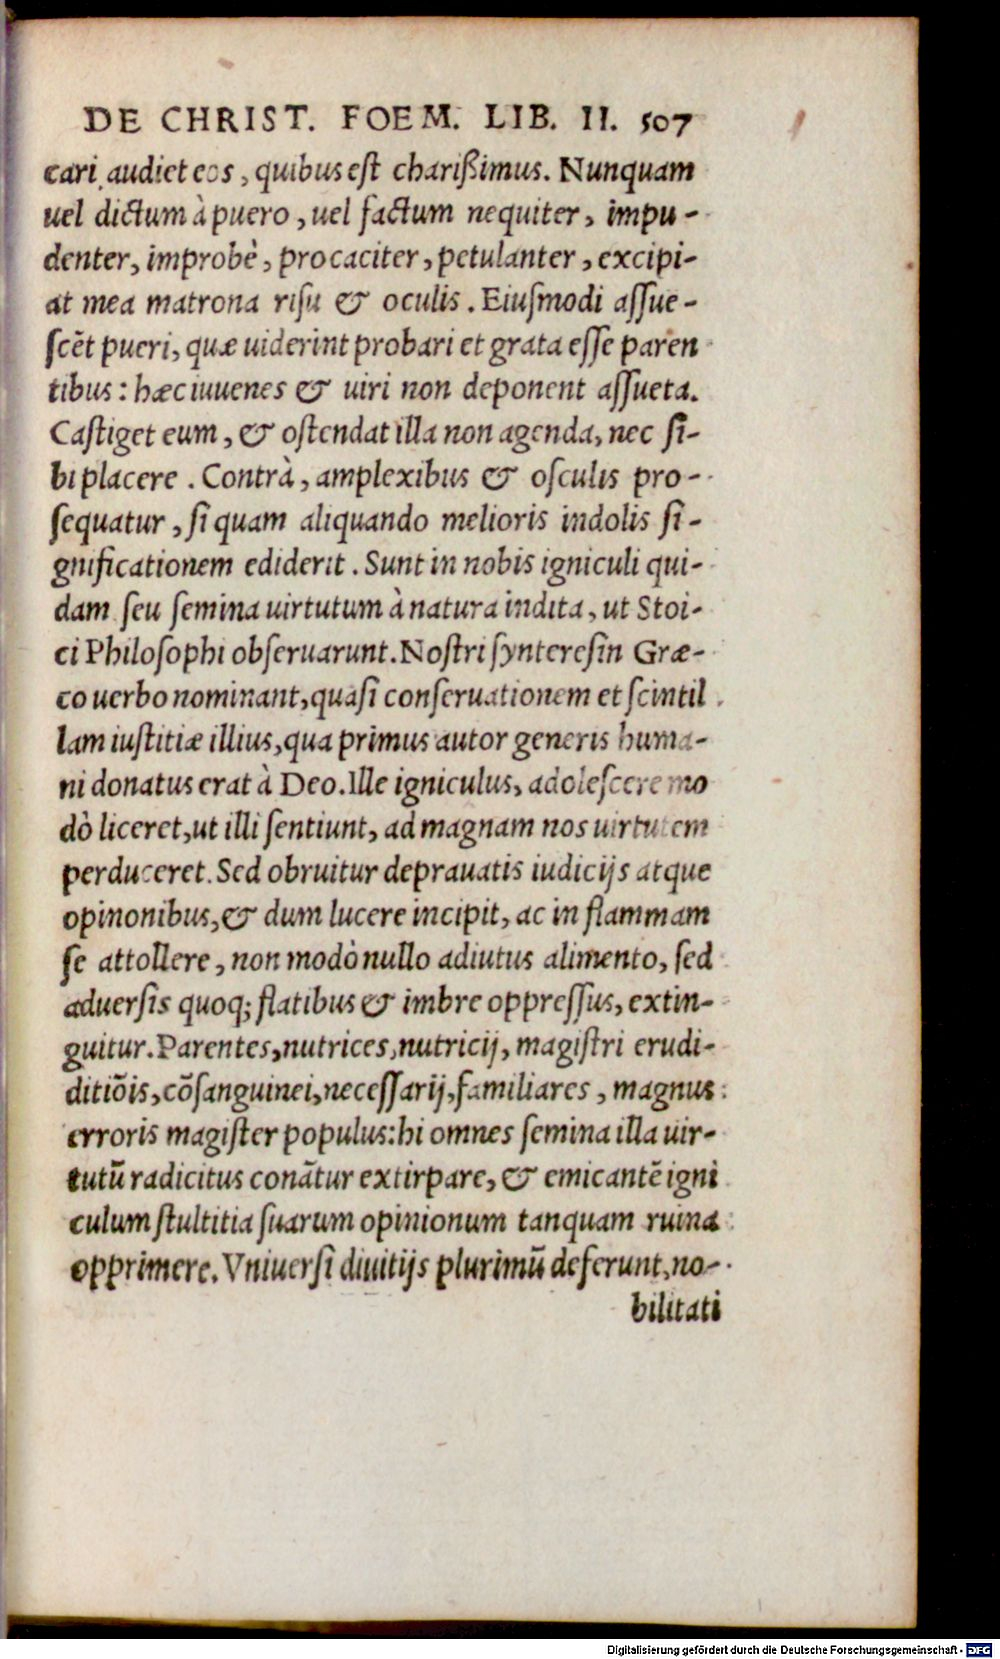 DE CHRIST. FOEM. LIB. II. 507
cari audiet eos, quibus est charißimus. Nunquam
uel dictum à puero, uel factum nequiter, impu-
denter, improbè, procaciter, petulanter, excipi-
at mea matrona risu & oculis. Eiusmodi assue-
scēt pueri, quæ uiderint probari et grata esse paren
tibus: hæc iuuenes & uiri non deponent assueta.
Castiget eum, & ostendat illa non agenda, nec si-
bi placere. Contrà, amplexibus & osculis pro-
sequatur, si quam aliquando melioris indolis si-
gnificationem ediderit. Sunt in nobis igniculi qui-
dam seu semina uirtutum à natura indita, ut Stoi-
ci Philosophi obseruarunt. Nostri synteresin Græ-
co uerbo nominant, quasi conseruationem et scintil
lam iustitiæ illius, qua primus autor generis huma-
ni donatus erat à Deo. Ille igniculus, adolescere mo
dò liceret, ut illi sentiunt, ad magnam nos uirtutem
perduceret. Sed obruitur deprauatis iudicijs atque
opinonibus, & dum lucere incipit, ac in flammam
se attollere, non modò nullo adiutus alimento, sed
aduersis quoq; flatibus & imbre oppressus, extin-
guitur. Parentes, nutrices, nutricij, magistri erudi-
ditiōis, cōsanguinei, necessarij, familiares, magnus
erroris magister populus: hi omnes semina illa uir-
tutū radicitus conātur extirpare, & emicantē igni
culum stultitia suarum opinionum tanquam ruina
opprimere. Vniuersi diuitijs plurimū deferunt, no-
bilitati
Digitalisierung gefördert durch die Deutsche Forschungsgemeinschaft - DFG